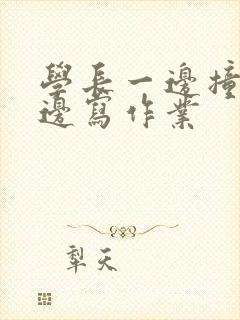 學長一邊撞
邊寫作業
犁天